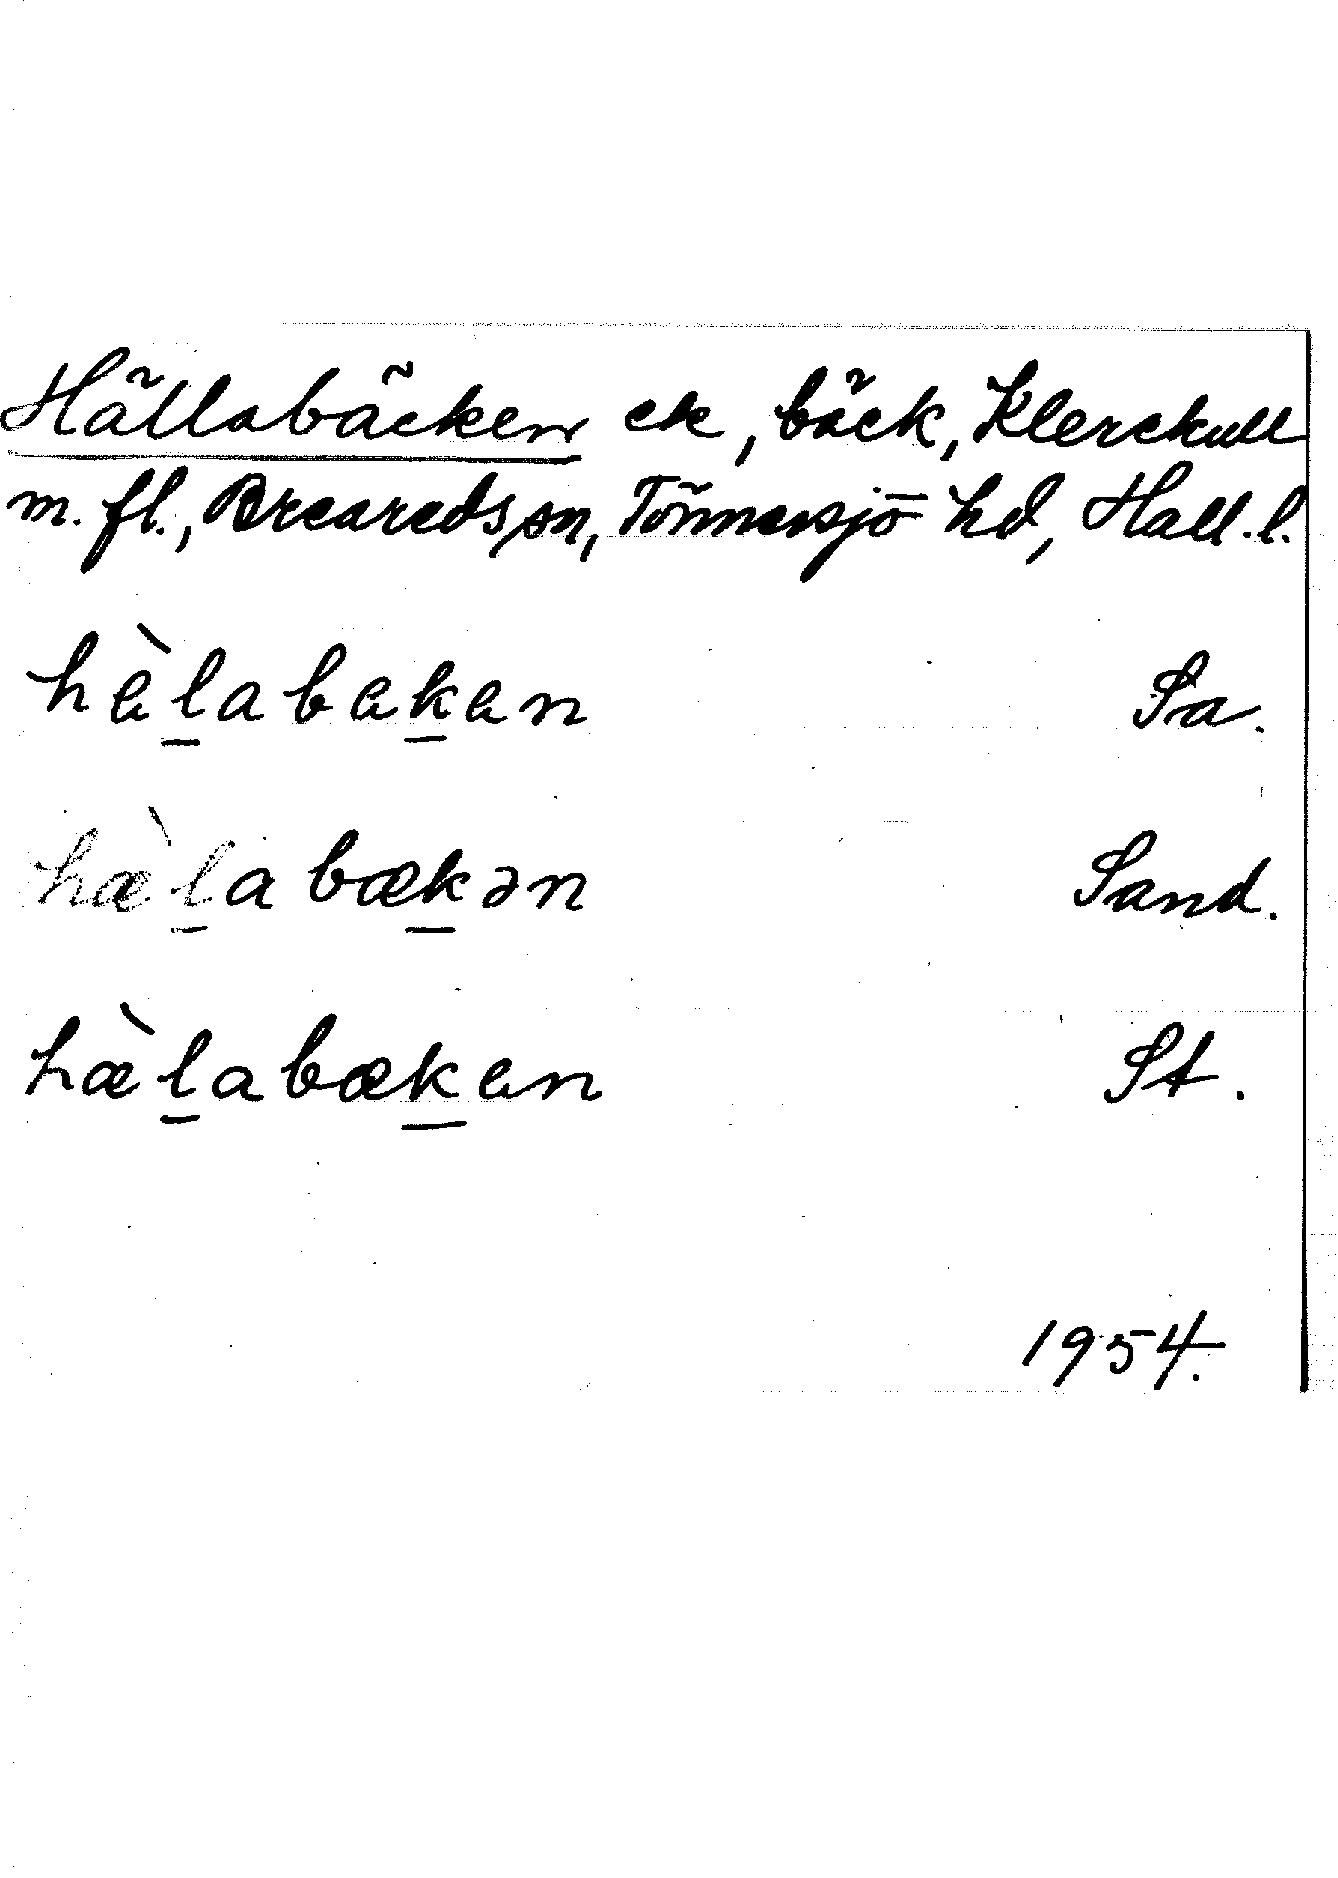 Hällabäcken ek, bäck, Klerckull
m. fl., Breareds sn, Tönnersjö hd, Hall. l.
hèl̠abek̠en Sa.
hæ̀l̠abæk̠ən Sand.
hæ̀l̠abæk̠en St.
1954.